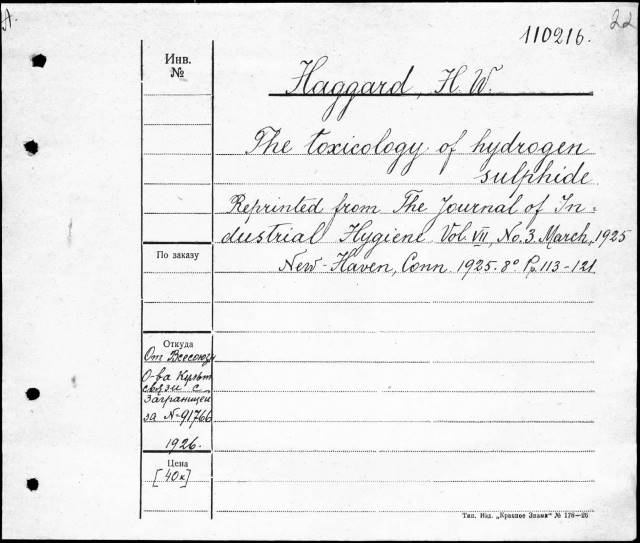 110216.
22
Инв.
№
Haggard, H. W.
The toxicology of hydrogen
sulphide
Reprinted from The Journal of In-
dustrial Hygiene Vol. VII, No. 3. March, 1925
New-Haven, Conn 1925. 8° Pp. 113-121
По заказу
Откуда
От Всесоюзн
О-ва Культ
связи с
Заграницей
за N-91766
1926.
Цена
[40к]
Тип. Изд. „Красное Знамя" № 178—26